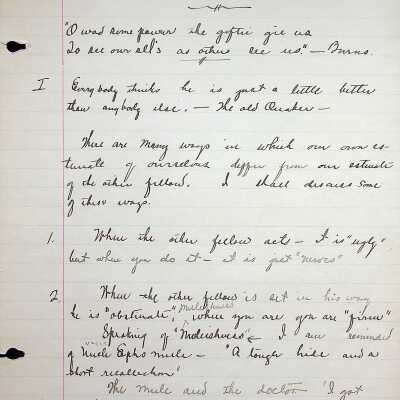 "O wad some power the giftie gie us
To see oursel's as others see us." — Burns.
I Everybody thinks he is just a little better
than anybody else. — The old Quaker —
There are many ways in which our own es-
timate of ourselves differ from our estimate
of the other fellow. I shall discuss some
of these ways.
1. When the other fellow acts — it is "ugly"
but when you do it — it is just "nerves"
2. When the other fellow is set in his way
he is "obstinate", where you are you are "firm"
Speaking of I am reminded
of Uncle Ephs mule — "A tough hide and a
short recollection"
The mule and the doctor "I got